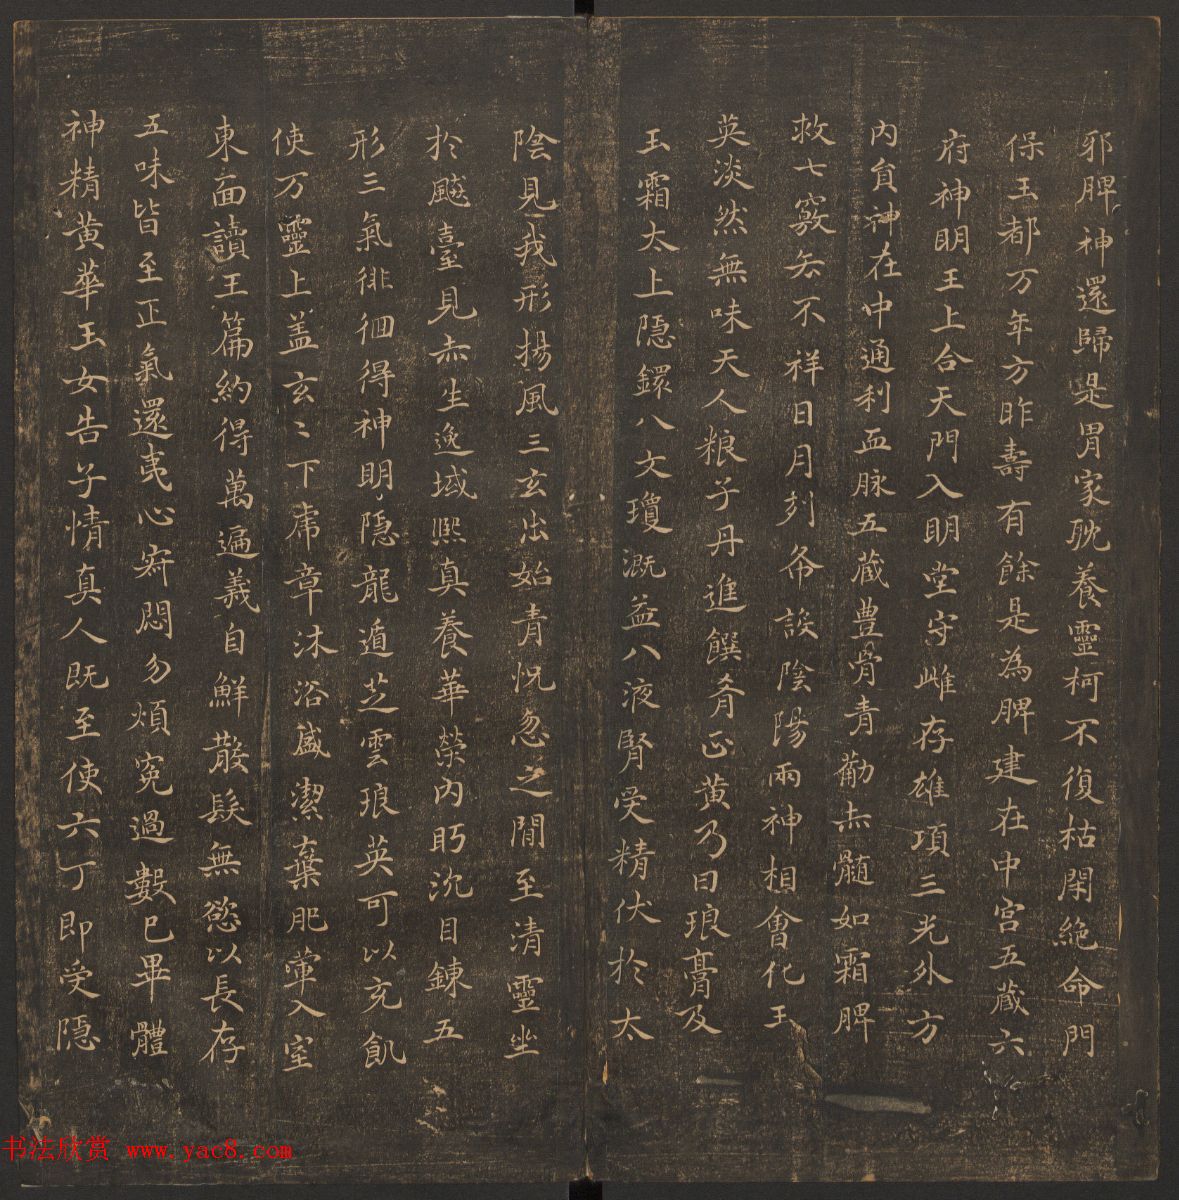 邪脾神還歸是胃家耽養靈柯不復枯閑絶命門
保玉都万年方昨壽有餘是為脾建在中宫五蔵六
府神明王上合天門入明堂守雌存雄項三光外方
内負神在中通利血脉五蔵豊骨青勸赤髓如霜脾
救七竅去不祥日月列布設陰陽兩神相會化玉
英淡然無味天人粮子丹進饌肴正黄乃曰琅膏及
玉霜太上隠鐶八文瓊溉益八液腎受精伏於太
陰見我形揚風三玄出始青怳忽之閒至清靈坐
於飈臺見赤生逸域熙真養華榮内眄沉目錬五
形三氣徘徊得神明隠龍遁芝雲琅英可以充飢
使万靈上盖玄〻下虎章沐浴盛潔棄肥葷入室
東面讀玉篇約得萬遍義自鮮散髮無慾以長存
五味皆至正氣還夷心寂悶勿煩寃過數已畢體
神精黄華玉女告子情真人既至使六丁即受隠
书法欣赏 www.yac8.com